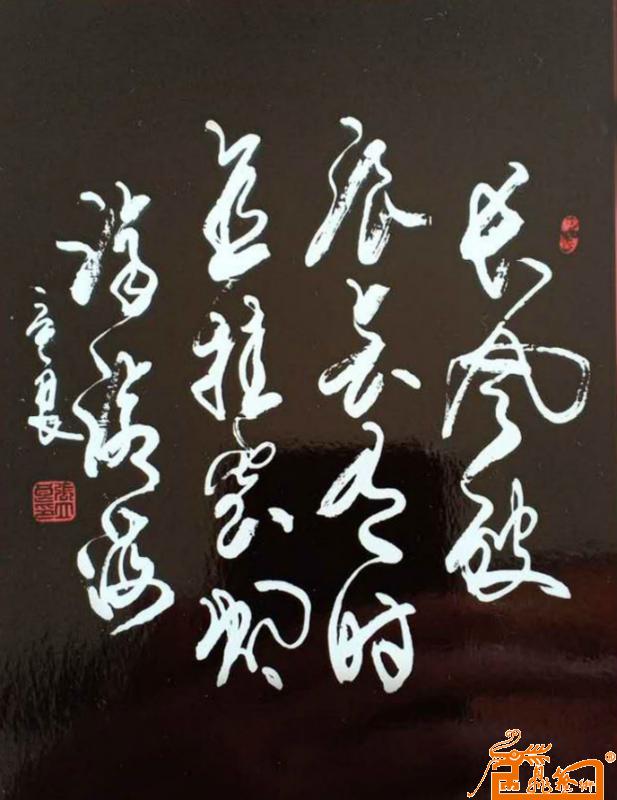 长风破
浪会有时
直挂云帆
济沧海